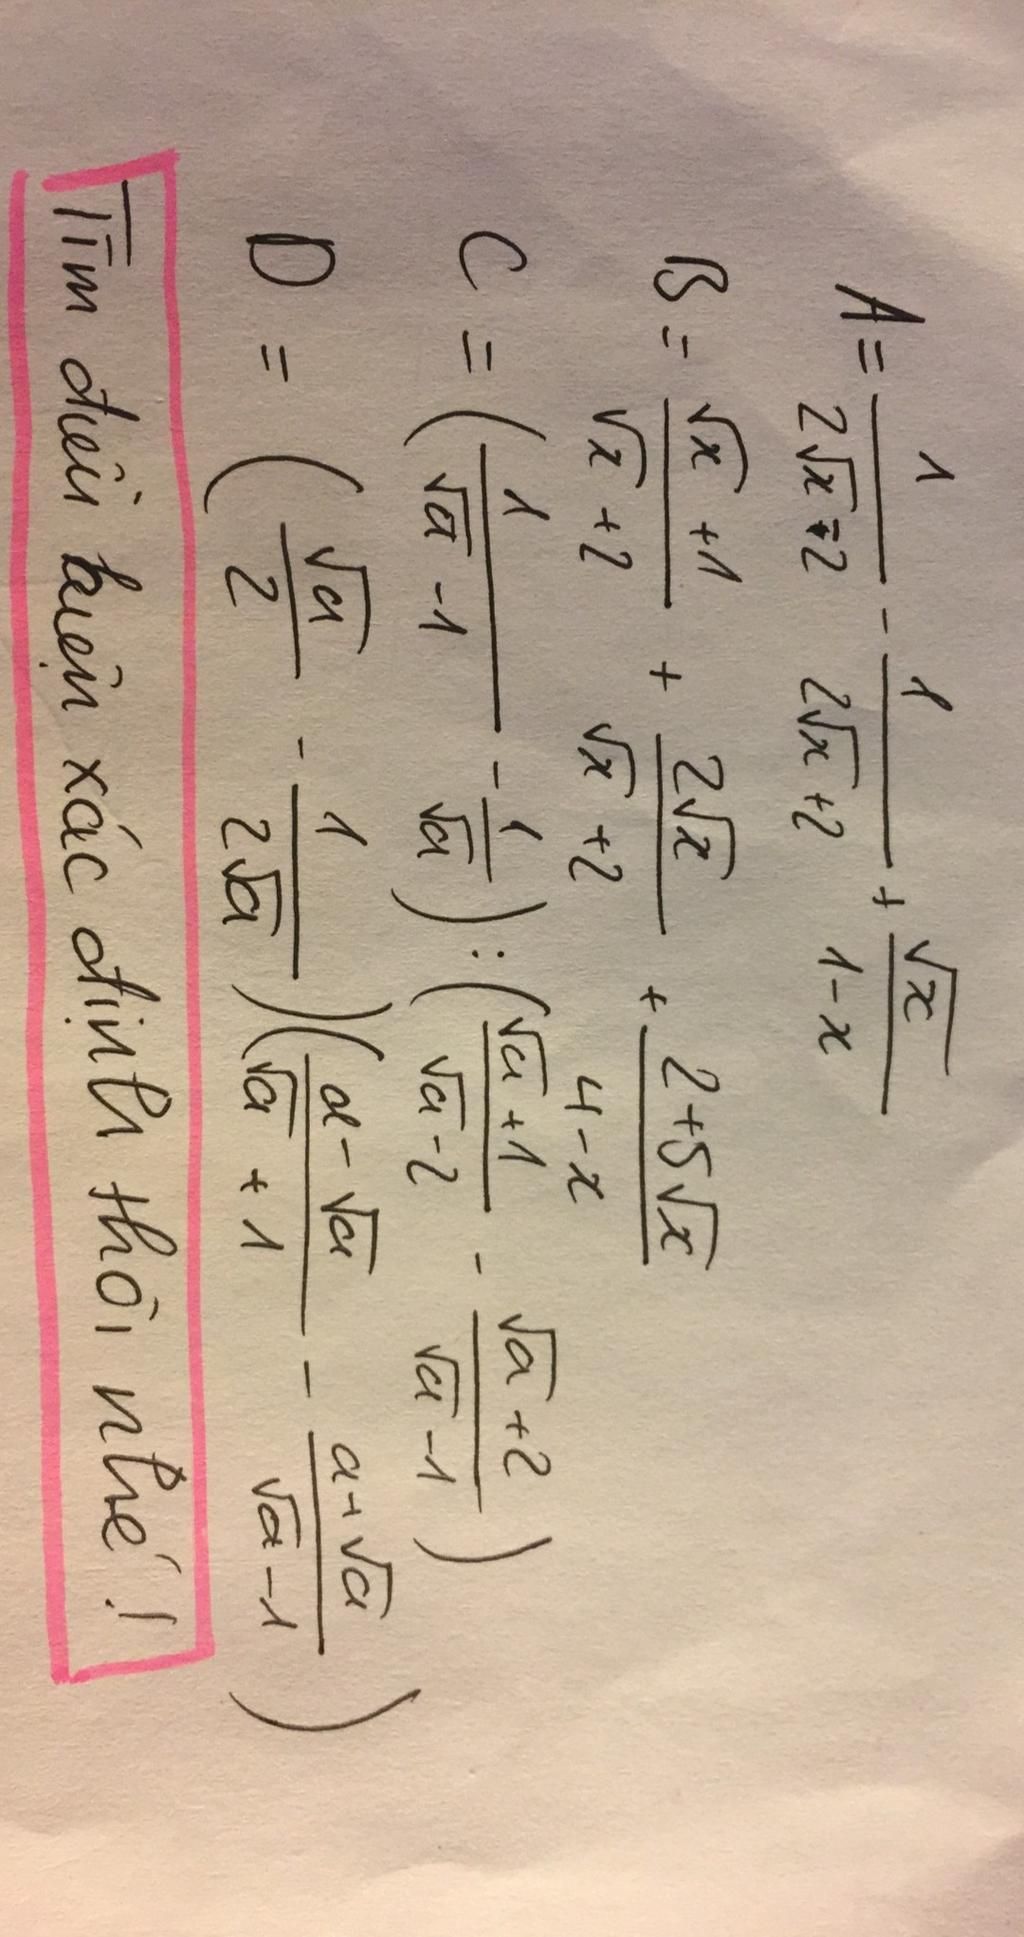 A = 1/(2√x - 2) - 1/(2√x + 2) + √x/(1 - x)
B = (√x + 1)/(√x + 2) + 2√x/(√x + 2) + (2 + 5√x)/(4 - x)
C = (1/(√a - 1) - 1/√a) : ((√a + 1)/(√a - 2) - (√a + 2)/(√a - 1))
D = (√a/2 - 1/(2√a))((a - √a)/(√a + 1) - (a + √a)/(√a - 1))
Tìm điều kiện xác định thôi nhé!